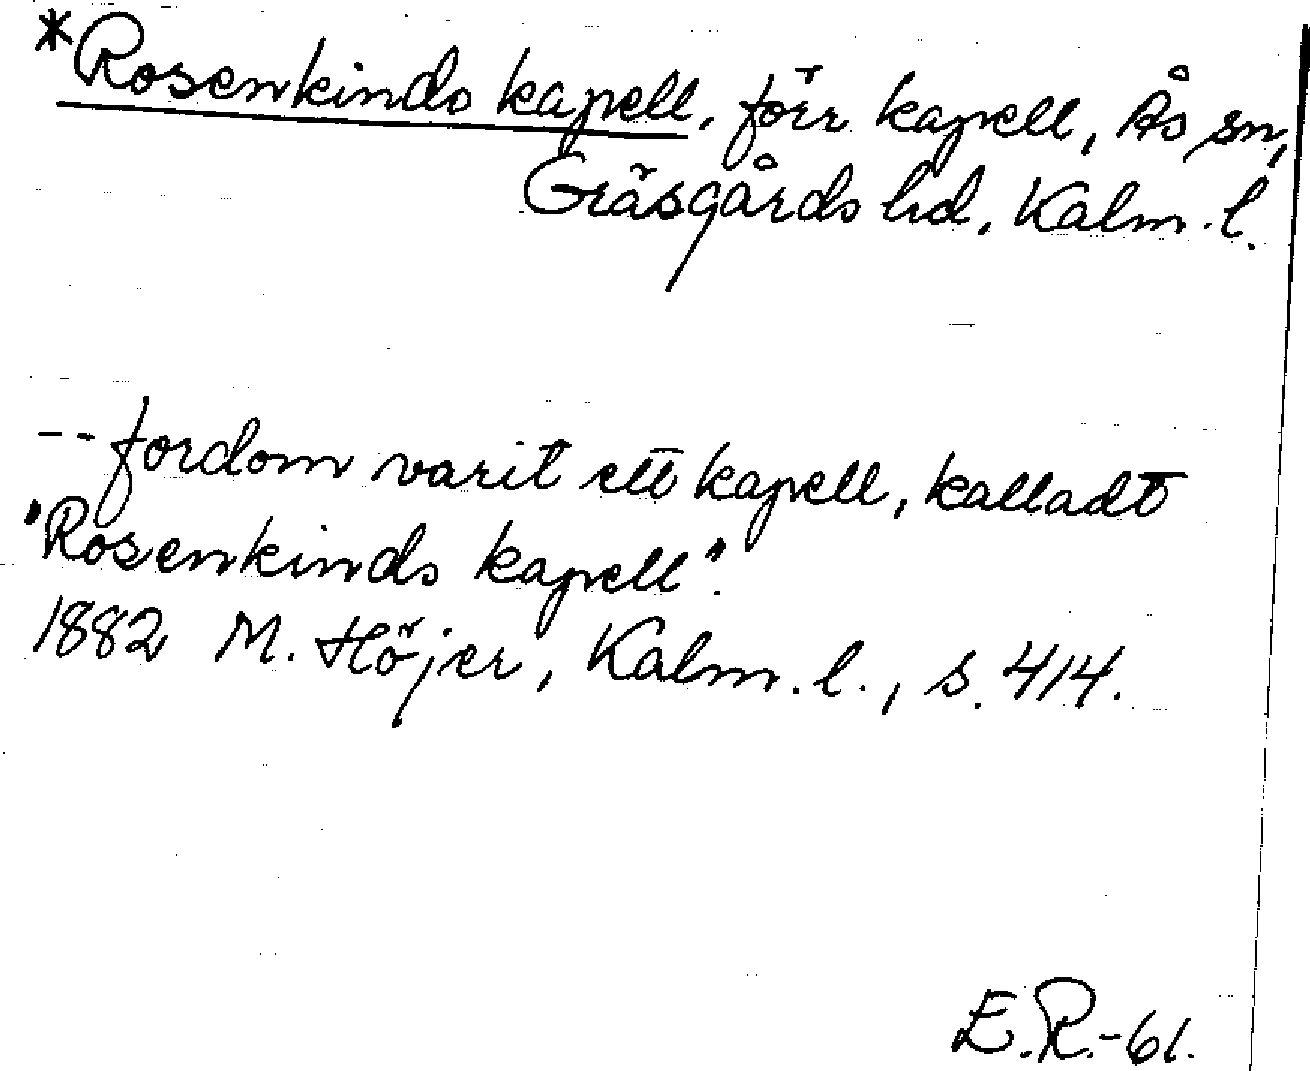 *Rosenkinds kapell, förr kapell, Ås sn,
Gräsgårds hd, Kalm. l.
-- fordom varit ett kapell, kalladt
"Rosenkinds kapell".
1882 M. Höjer, Kalm. l., s. 414.
E.R.-61.